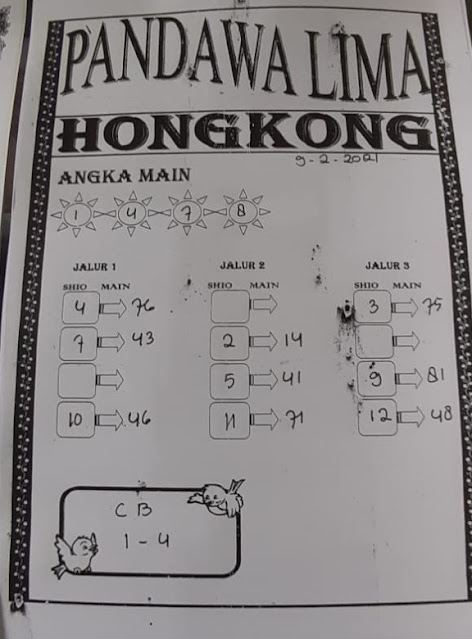 PANDAWA LIMA
HONGKONG
9-2-2021
ANGKA MAIN
1 4 7 8
JALUR 1
SHIO MAIN
4 76
7 43
10 46
JALUR 2
SHIO MAIN
2 14
5 41
11 71
JALUR 3
SHIO MAIN
3 75
9 81
12 48
CB
1-4